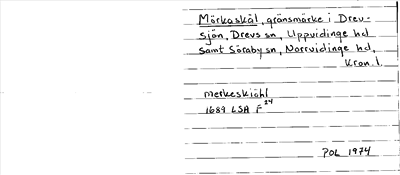 Märkaskäl, gränsmärke i Drev-
sjön, Drevs sn, Uppvidinge hd
samt Söraby sn, Norrvidinge hd,
Kron. l.
merkeskiähl
1689 LSA F 24
POL 1974